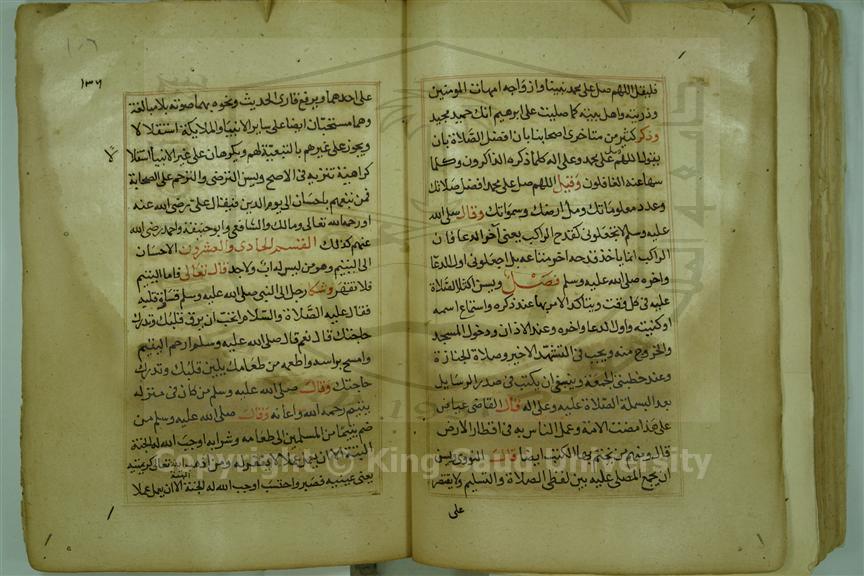 فليقل اللهم صل على محمد نبينا وازواجه امهات المومنين
وذريته واهل بيته كما صليت على ابرهيم انك حميد مجيد
وذكر كثير من متاخري اصحابنا بان افضل الصلاة بان
يقولوا اللهم صل على محمد وعلى اله كلما ذكره الذاكرون وكلما
سها عنه الغافلون وقيل اللهم صل على محمد افضل صلاتك
وعدد معلوماتك ومل ارضك وسمواتك وقال صلى الله
عليه وسلم لا تجعلوني كقدح الراكب يعني آخر الدعا فان
الراكب انما ياخذ قدحه اخر متاعه بل اجعلوني اول الدعا
واخره صلى الله عليه وسلم فصل ويسن اكثار الصلاة
عليه في كل وقت ويتاكد الامر بها عند ذكره واستماع اسمه
او كنيته واول الدعا واخره وعند الاذان ودخول المسجد
والخروج منه ويجب في التشهد الاخير وصلاة الجنازة
وعند خطبتي الجمعة وينبغي ان يكتب في صدر الرسايل
بعد البسملة الصلاة عليه وعلى اله قال القاضي عياض
على هذا مضت الامة وعمل الناس به في اقطار الارض
قال ومنهم من يختم بها الكتب ايضا قال النووي يسن
ان يجمع المصلي عليه بين لفظي الصلاة والتسليم ولا يقتصر
على
١٠٦
١٣٦
على احدهما ويرفع قاري الحديث ونحوه بهما صوته بلا مبالغة
وهما مستحبتان ايضا على ساير الانبيا والملايكة استقلالا
ويجوز على غيرهم بالتبعية لهم ويكرهان على غير الانبيا استقلالا
كراهية تنزيه في الاصح ويسن الترضي والترحم على الصحابة
فمن تبعهم باحسان الى يوم الدين فيقال على رضي الله عنه
او رحمه الله تعالى ومالك والشافعي وابو حنيفة واحمد رضي الله
عنهم كذلك القسم الحادي والعشرون الاحسان
الى اليتيم وهو من ليس له اب ولا جد قال تعالى فاما اليتيم
فلا تقهر وشكا رجل الى النبي صلى الله عليه وسلم قساوة قلبه
فقال عليه الصلاة والسلام اتحب ان يرق قلبك وتدرك
حاجتك قال نعم قال صلى الله عليه وسلم ارحم اليتيم
وامسح براسه واطعمه من طعامك يلين قلبك وتدرك
حاجتك وقال صلى الله عليه وسلم من كان في منزله
يتيم رحمه الله واعانه وقال صلى الله عليه وسلم من
ضم يتيما من المسلمين الى طعامه وشرابه اوجب الله له الجنة
البتة الا ان يعمل عملا لا يغفر له ومن اذهب الله تعالى كريمتيه
يعني عينيه فصبر واحتسب اوجب الله له الجنة البتة الا ان يعمل عملا
Copyright © King Saud University